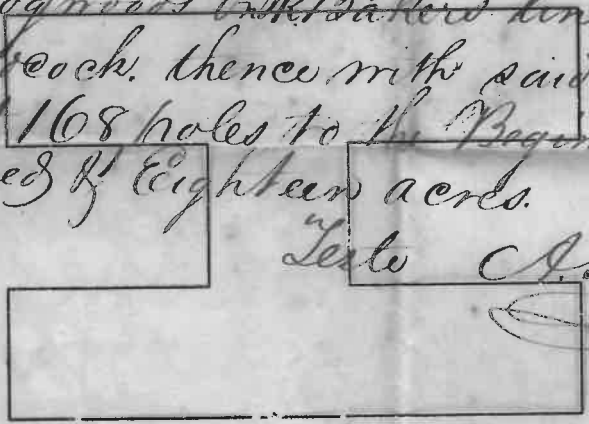 cock. thence with said
168 poles to the Begin
ed & Eighteen acres.
Teste A.